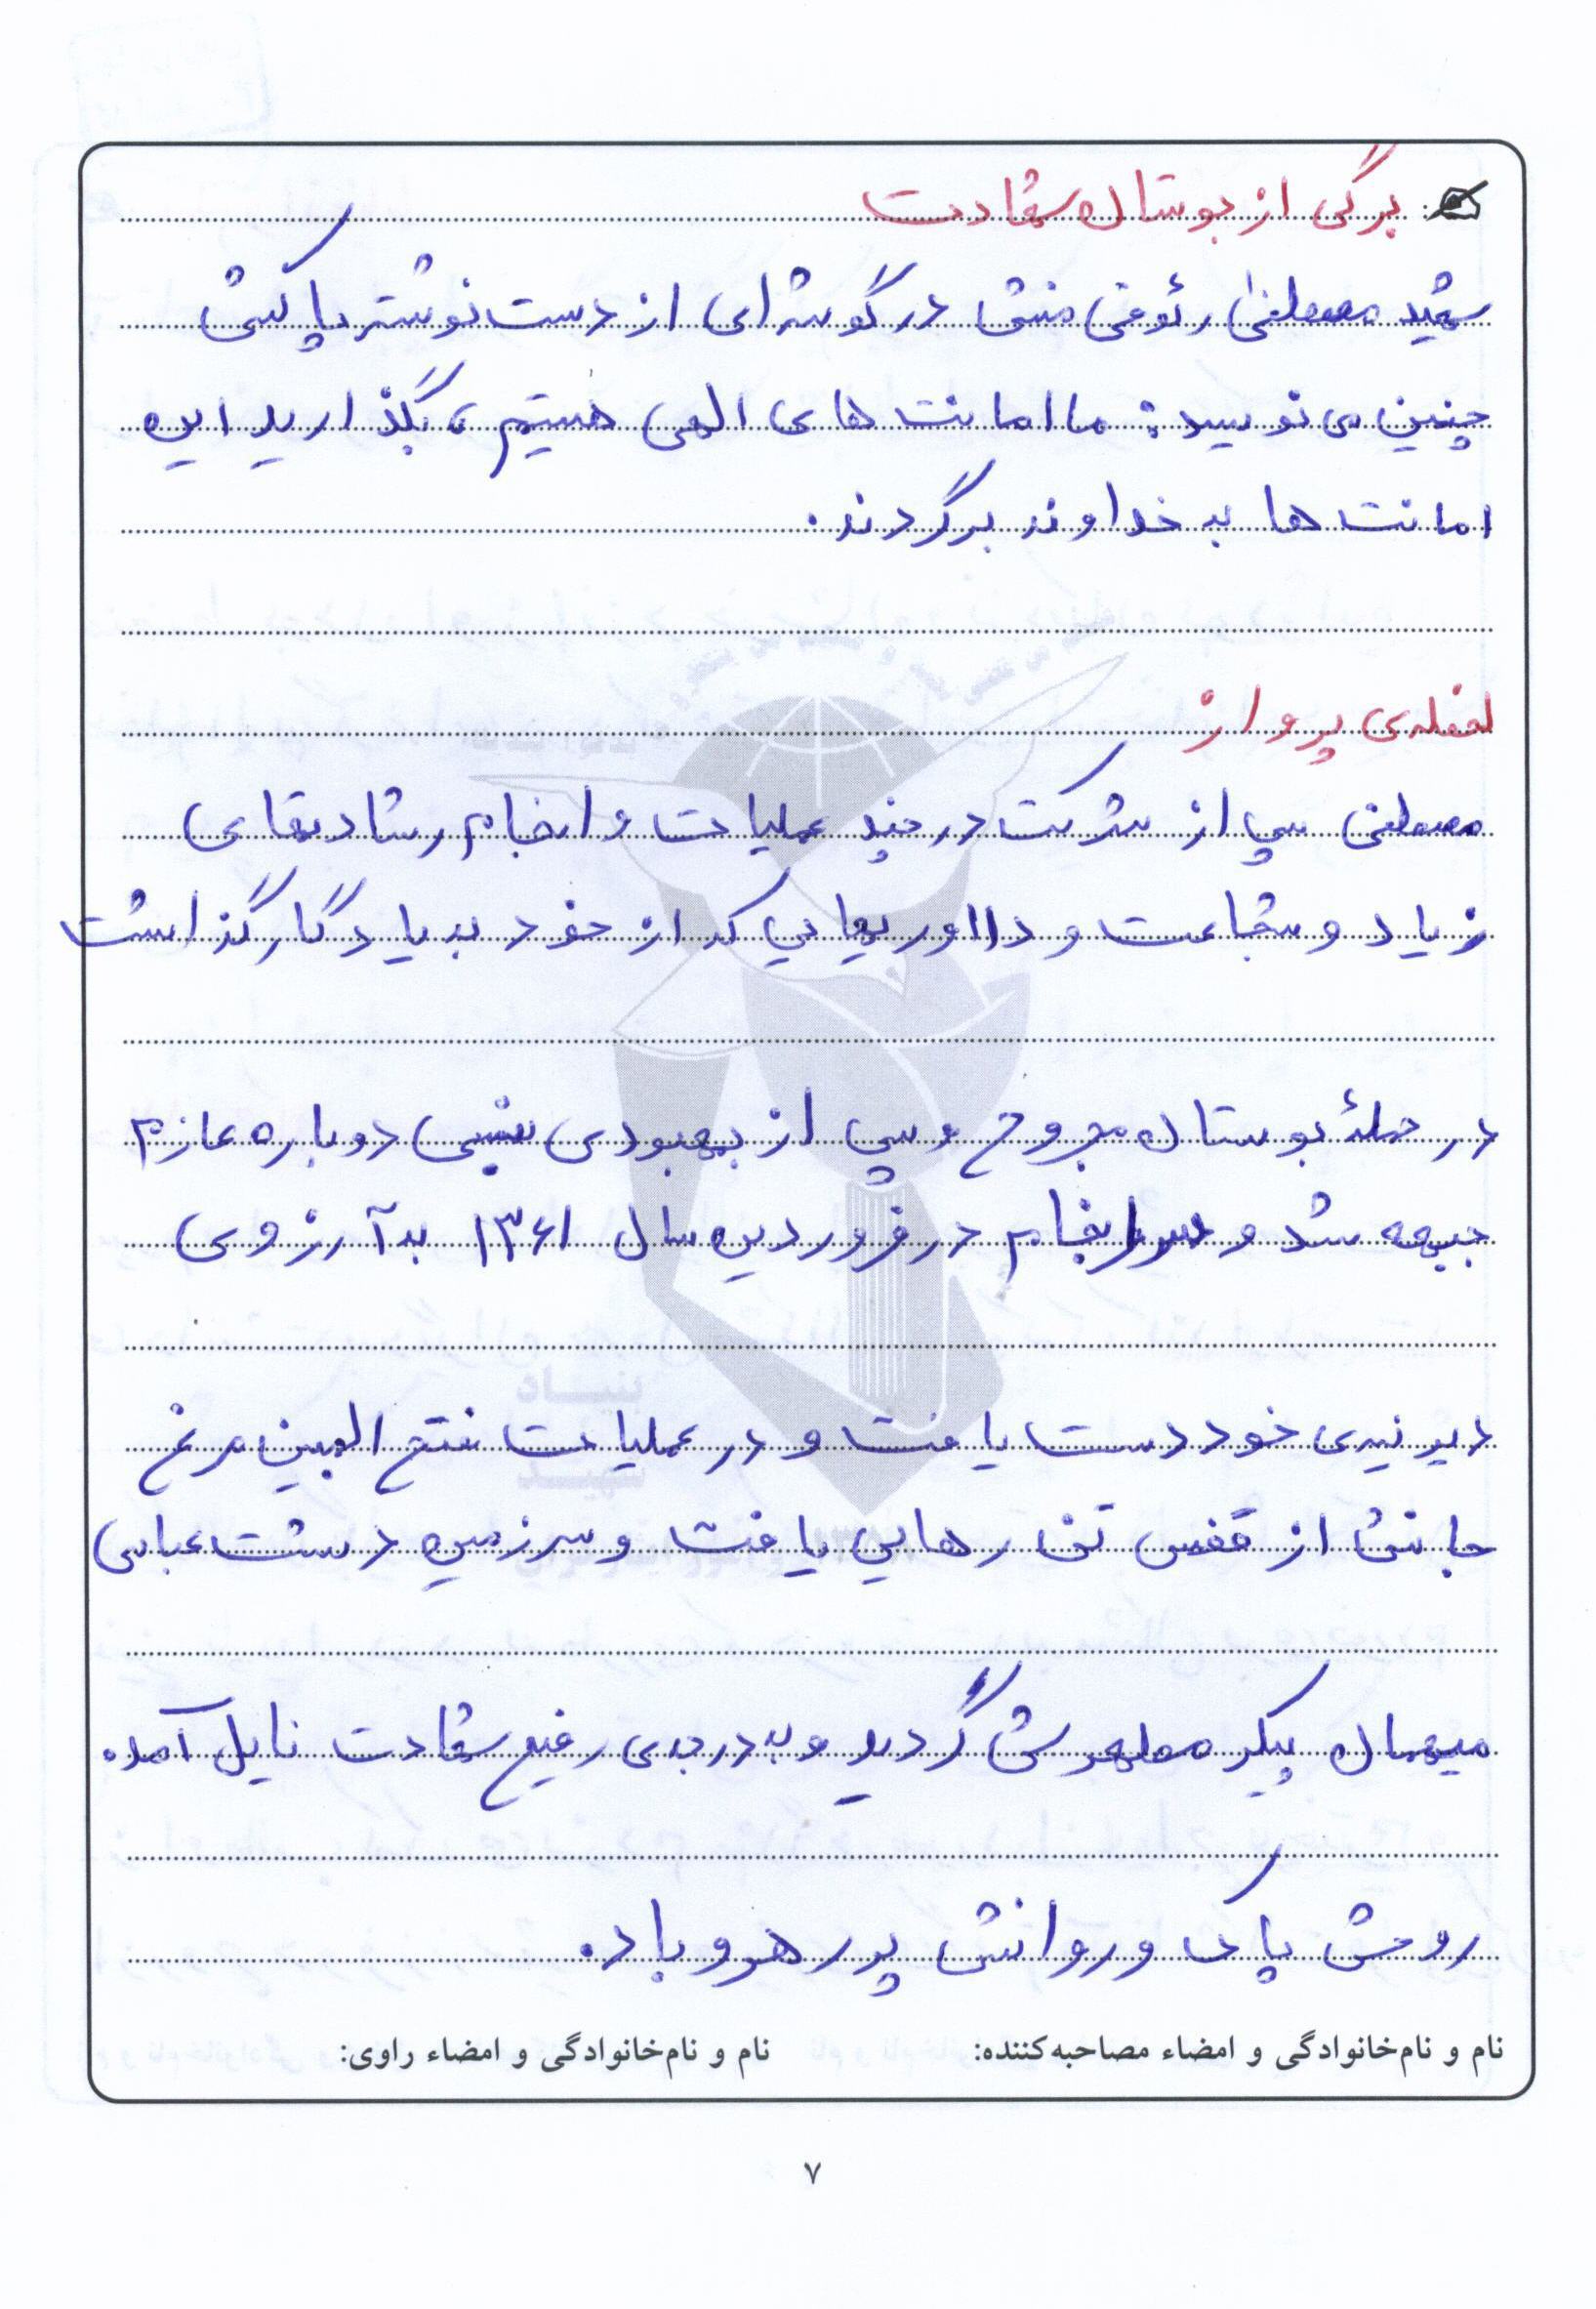 برگی از بوستان شهادت
شهید مصطفی رئوفی منش در گوشه‌ای از دست نوشته پاکش
چنین می نویسد: ما امانت های الهی هستیم، بگذارید این
امانت ها به خداوند برگردند.
لحظه‌ی پرواز
مصطفی پس از شرکت در چند عملیات و انجام رشادتهای
زیاد و شجاعت و دلاوریهایی که از خود به یادگار گذاشت
در حمله بوستان مجروح و پس از بهبودی نسبی دوباره عازم
جبهه شد و سرانجام در فروردین سال ۱۳۶۱ به آرزوی
دیرنیه‌ی خود دست یافت و در عملیات فتح المبین مرغ
جانش از قفس تن رهایی یافت و سرزمین دشت عباس
میهمان پیکر مطهرش گردید و به درجه‌ی رفیع شهادت نایل آمد.
روحش پاک و روانش پر رهرو باد.
نام و نام‌خانوادگی و امضاء مصاحبه‌کننده: نام و نام‌خانوادگی و امضاء راوی:
۷
بنیاد
شهید